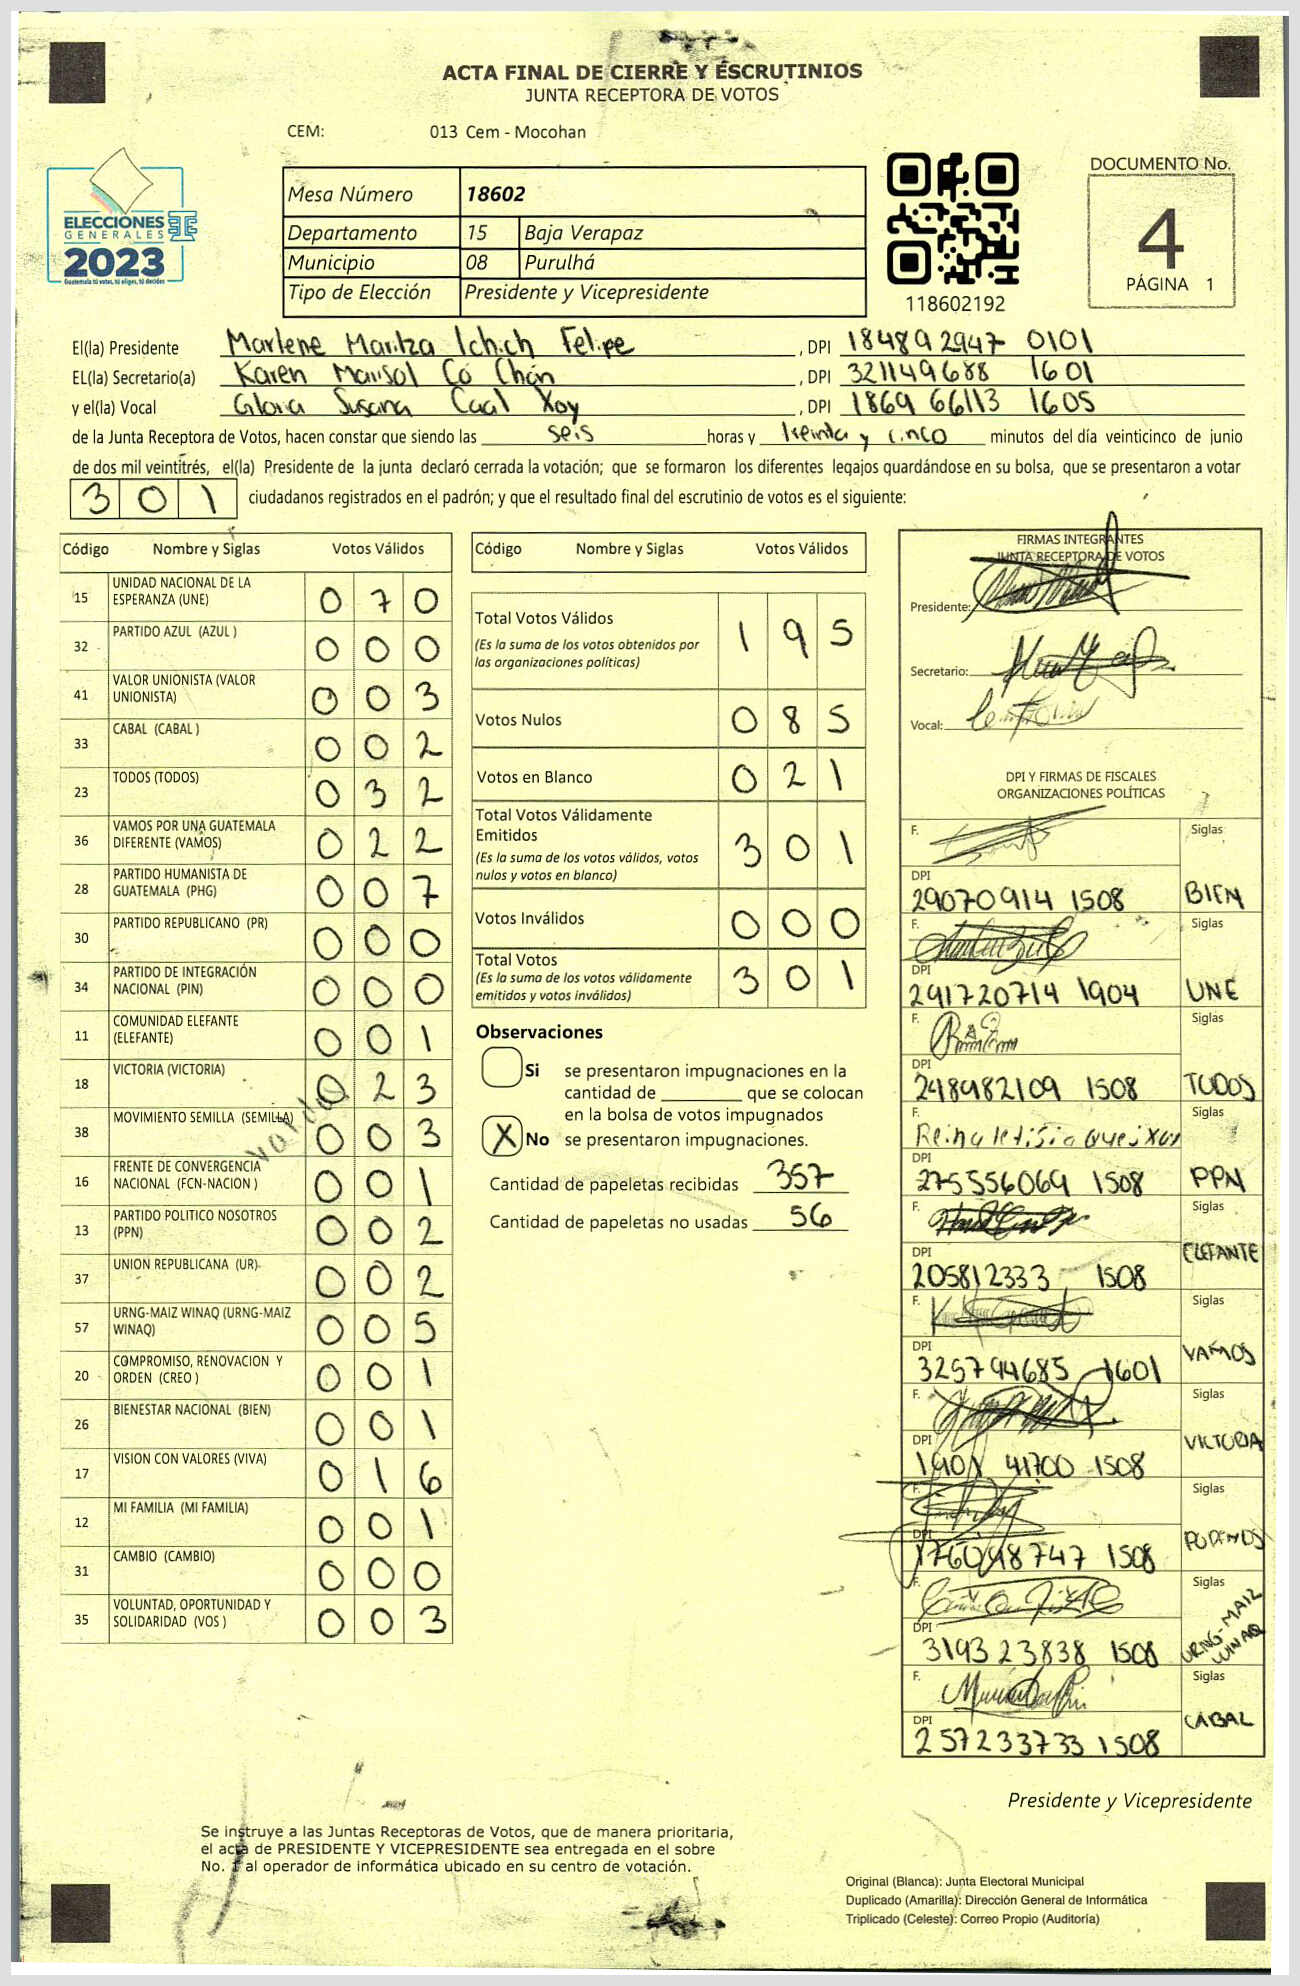 ACTA FINAL DE CIERRE Y ESCRUTINIOS
JUNTA RECEPTORA DE VOTOS
CEM: 013 Cem - Mocohan
ELECCIONES
GENERALES
2023
Guatemala tú votas, tú eliges, tú decides
Mesa Número 18602
Departamento 15 Baja Verapaz
Municipio 08 Purulhá
Tipo de Elección Presidente y Vicepresidente
118602192
DOCUMENTO No.
4
PÁGINA 1
El(la) Presidente Marlene Maritza Ichich Felipe , DPI 184892947 0101
EL(la) Secretario(a) Karen Marisol Có Chón , DPI 321149688 1601
y el(la) Vocal Gloria Susana Caal Xoy , DPI 1869 66113 1605
de la Junta Receptora de Votos, hacen constar que siendo las seis horas y treinta y cinco minutos del día veinticinco de junio
de dos mil veintitrés, el(la) Presidente de la junta declaró cerrada la votación; que se formaron los diferentes legajos quardándose en su bolsa, que se presentaron a votar
301 ciudadanos registrados en el padrón; y que el resultado final del escrutinio de votos es el siguiente:
Código Nombre y Siglas Votos Válidos
15 UNIDAD NACIONAL DE LA ESPERANZA (UNE) 0 7 0
32 PARTIDO AZUL (AZUL ) 0 0 0
41 VALOR UNIONISTA (VALOR UNIONISTA) 0 0 3
33 CABAL (CABAL ) 0 0 2
23 TODOS (TODOS) 0 3 2
36 VAMOS POR UNA GUATEMALA DIFERENTE (VAMOS) 0 2 2
28 PARTIDO HUMANISTA DE GUATEMALA (PHG) 0 0 7
30 PARTIDO REPUBLICANO (PR) 0 0 0
34 PARTIDO DE INTEGRACIÓN NACIONAL (PIN) 0 0 0
11 COMUNIDAD ELEFANTE (ELEFANTE) 0 0 1
18 VICTORIA (VICTORIA) 0 2 3
38 MOVIMIENTO SEMILLA (SEMILLA) 0 0 3
16 FRENTE DE CONVERGENCIA NACIONAL (FCN-NACION ) 0 0 1
13 PARTIDO POLITICO NOSOTROS (PPN) 0 0 2
37 UNION REPUBLICANA (UR) 0 0 2
57 URNG-MAIZ WINAQ (URNG-MAIZ WINAQ) 0 0 5
20 COMPROMISO, RENOVACION Y ORDEN (CREO ) 0 0 1
26 BIENESTAR NACIONAL (BIEN) 0 0 1
17 VISION CON VALORES (VIVA) 0 1 6
12 MI FAMILIA (MI FAMILIA) 0 0 1
31 CAMBIO (CAMBIO) 0 0 0
35 VOLUNTAD, OPORTUNIDAD Y SOLIDARIDAD (VOS ) 0 0 3
Código Nombre y Siglas Votos Válidos
Total Votos Válidos 1 9 5
(Es la suma de los votos obtenidos por
las organizaciones políticas)
Votos Nulos 0 8 5
Votos en Blanco 0 2 1
Total Votos Válidamente
Emitidos 3 0 1
(Es la suma de los votos válidos, votos
nulos y votos en blanco)
Votos Inválidos 0 0 0
Total Votos 3 0 1
(Es la suma de los votos válidamente
emitidos y votos inválidos)
Observaciones
Si se presentaron impugnaciones en la
cantidad de ________ que se colocan
en la bolsa de votos impugnados
X No se presentaron impugnaciones.
Cantidad de papeletas recibidas 357
Cantidad de papeletas no usadas 56
FIRMAS INTEGRANTES
JUNTA RECEPTORA DE VOTOS
Presidente:
Secretario:
Vocal:
DPI Y FIRMAS DE FISCALES
ORGANIZACIONES POLÍTICAS
F. Siglas
DPI
29070914 1508 BIEN
F. Siglas
DPI
291720714 1904 UNE
F. Siglas
DPI
248982109 1508 TODOS
F. Siglas
Reina
DPI
275556069 1508 PPN
F. Siglas
DPI
205812333 1508 ELEFANTE
F. Siglas
DPI
325794685 1601 VAMOS
F. Siglas
DPI
1901 41700 1508 VICTORIA
F. Siglas
DPI
176098747 1508 PODEMOS
F. Siglas
DPI
3193 23838 1508 URNG-MAIZ WINAQ
F. Siglas
DPI
257233733 1508 CABAL
Presidente y Vicepresidente
Se instruye a las Juntas Receptoras de Votos, que de manera prioritaria,
el acta de PRESIDENTE Y VICEPRESIDENTE sea entregada en el sobre
No. 1 al operador de informática ubicado en su centro de votación.
Original (Blanca): Junta Electoral Municipal
Duplicado (Amarilla): Dirección General de Informática
Triplicado (Celeste): Correo Propio (Auditoría)